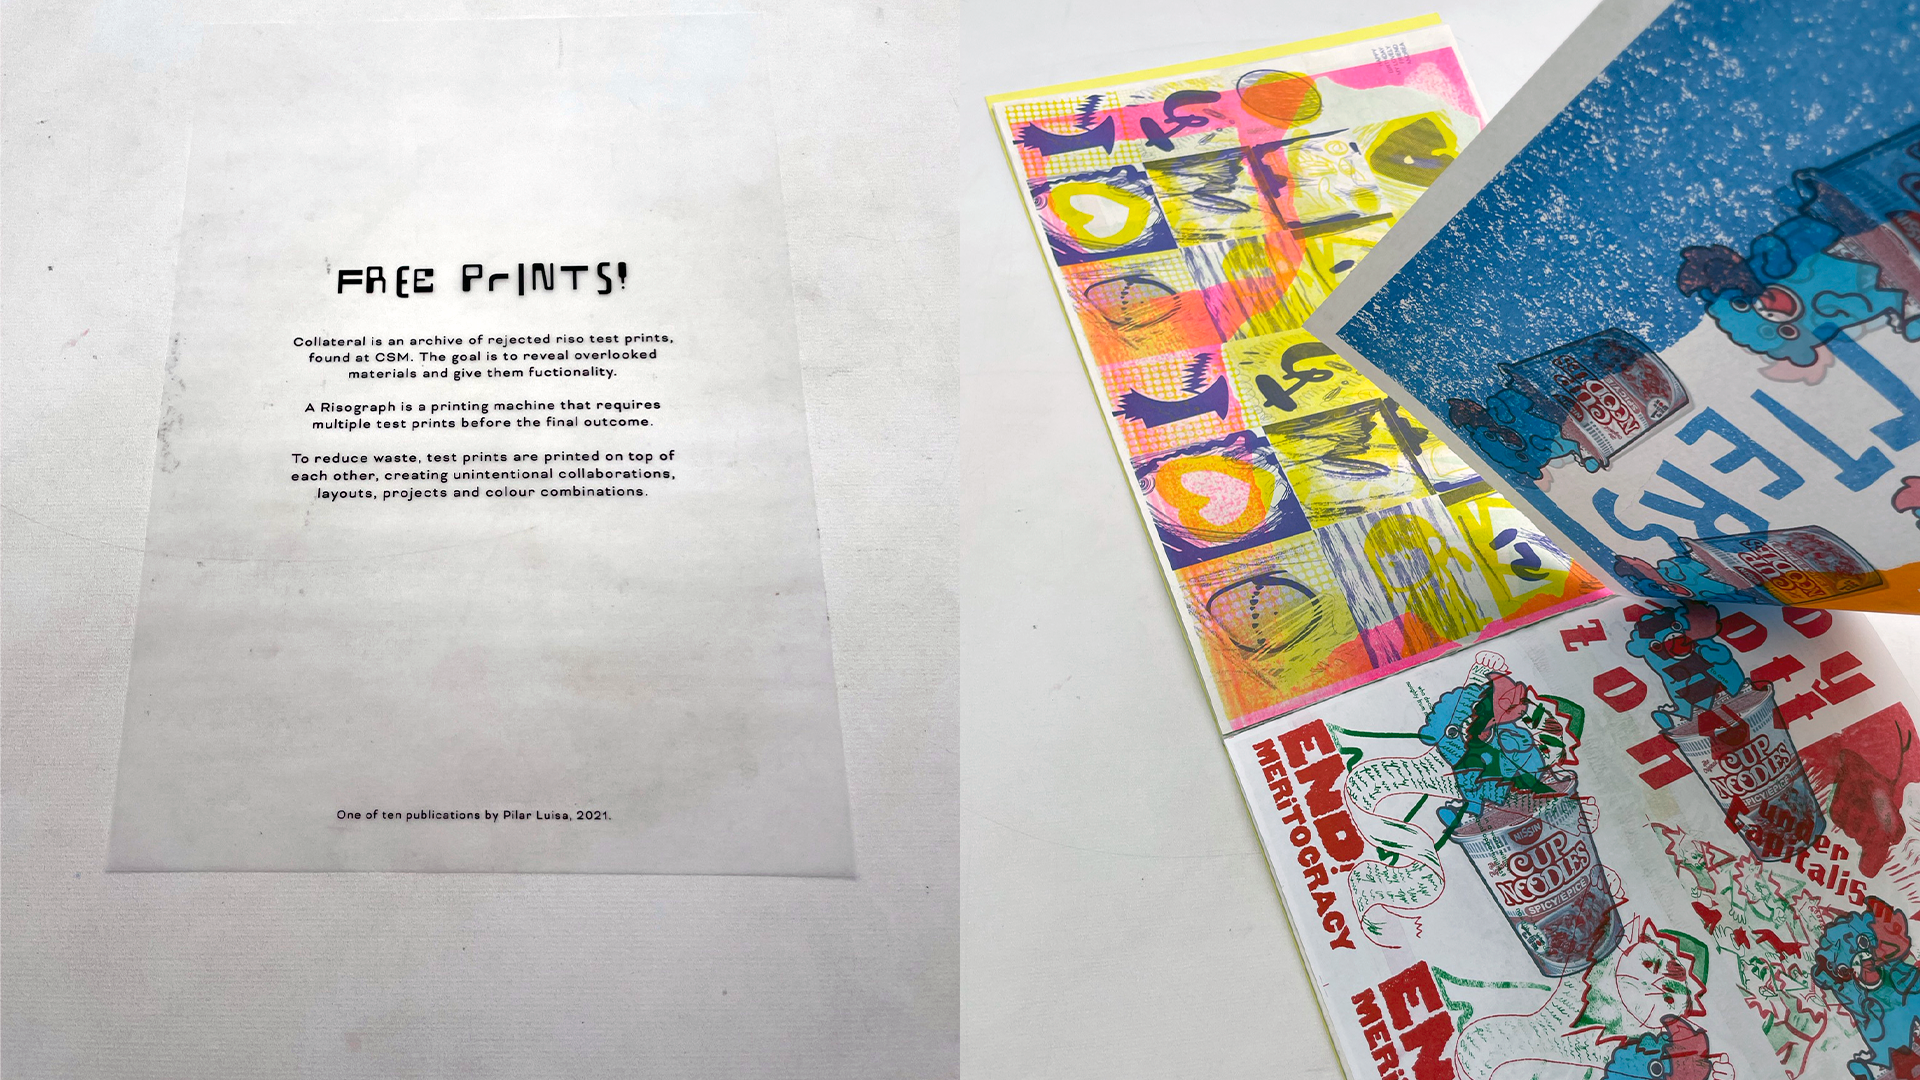 FREE PrINTS!
Collateral is an archive of rejected riso test prints,
found at CSM. The goal is to reveal overlooked
materials and give them fuctionality.
A Risograph is a printing machine that requires
multiple test prints before the final outcome.
To reduce waste, test prints are printed on top of
each other, creating unintentional collaborations,
layouts, projects and colour combinations.
One of ten publications by Pilar Luisa, 2021.
CUP
NOODLES
TERS
CUP
NOODLES
END!
MERiTOCRACY
NISSIN
CUP
NOODLES
SPICY/EPICÉ
CUP
NOODLES
SPICY/EPICÉ
under
Capitalism
END
MERi